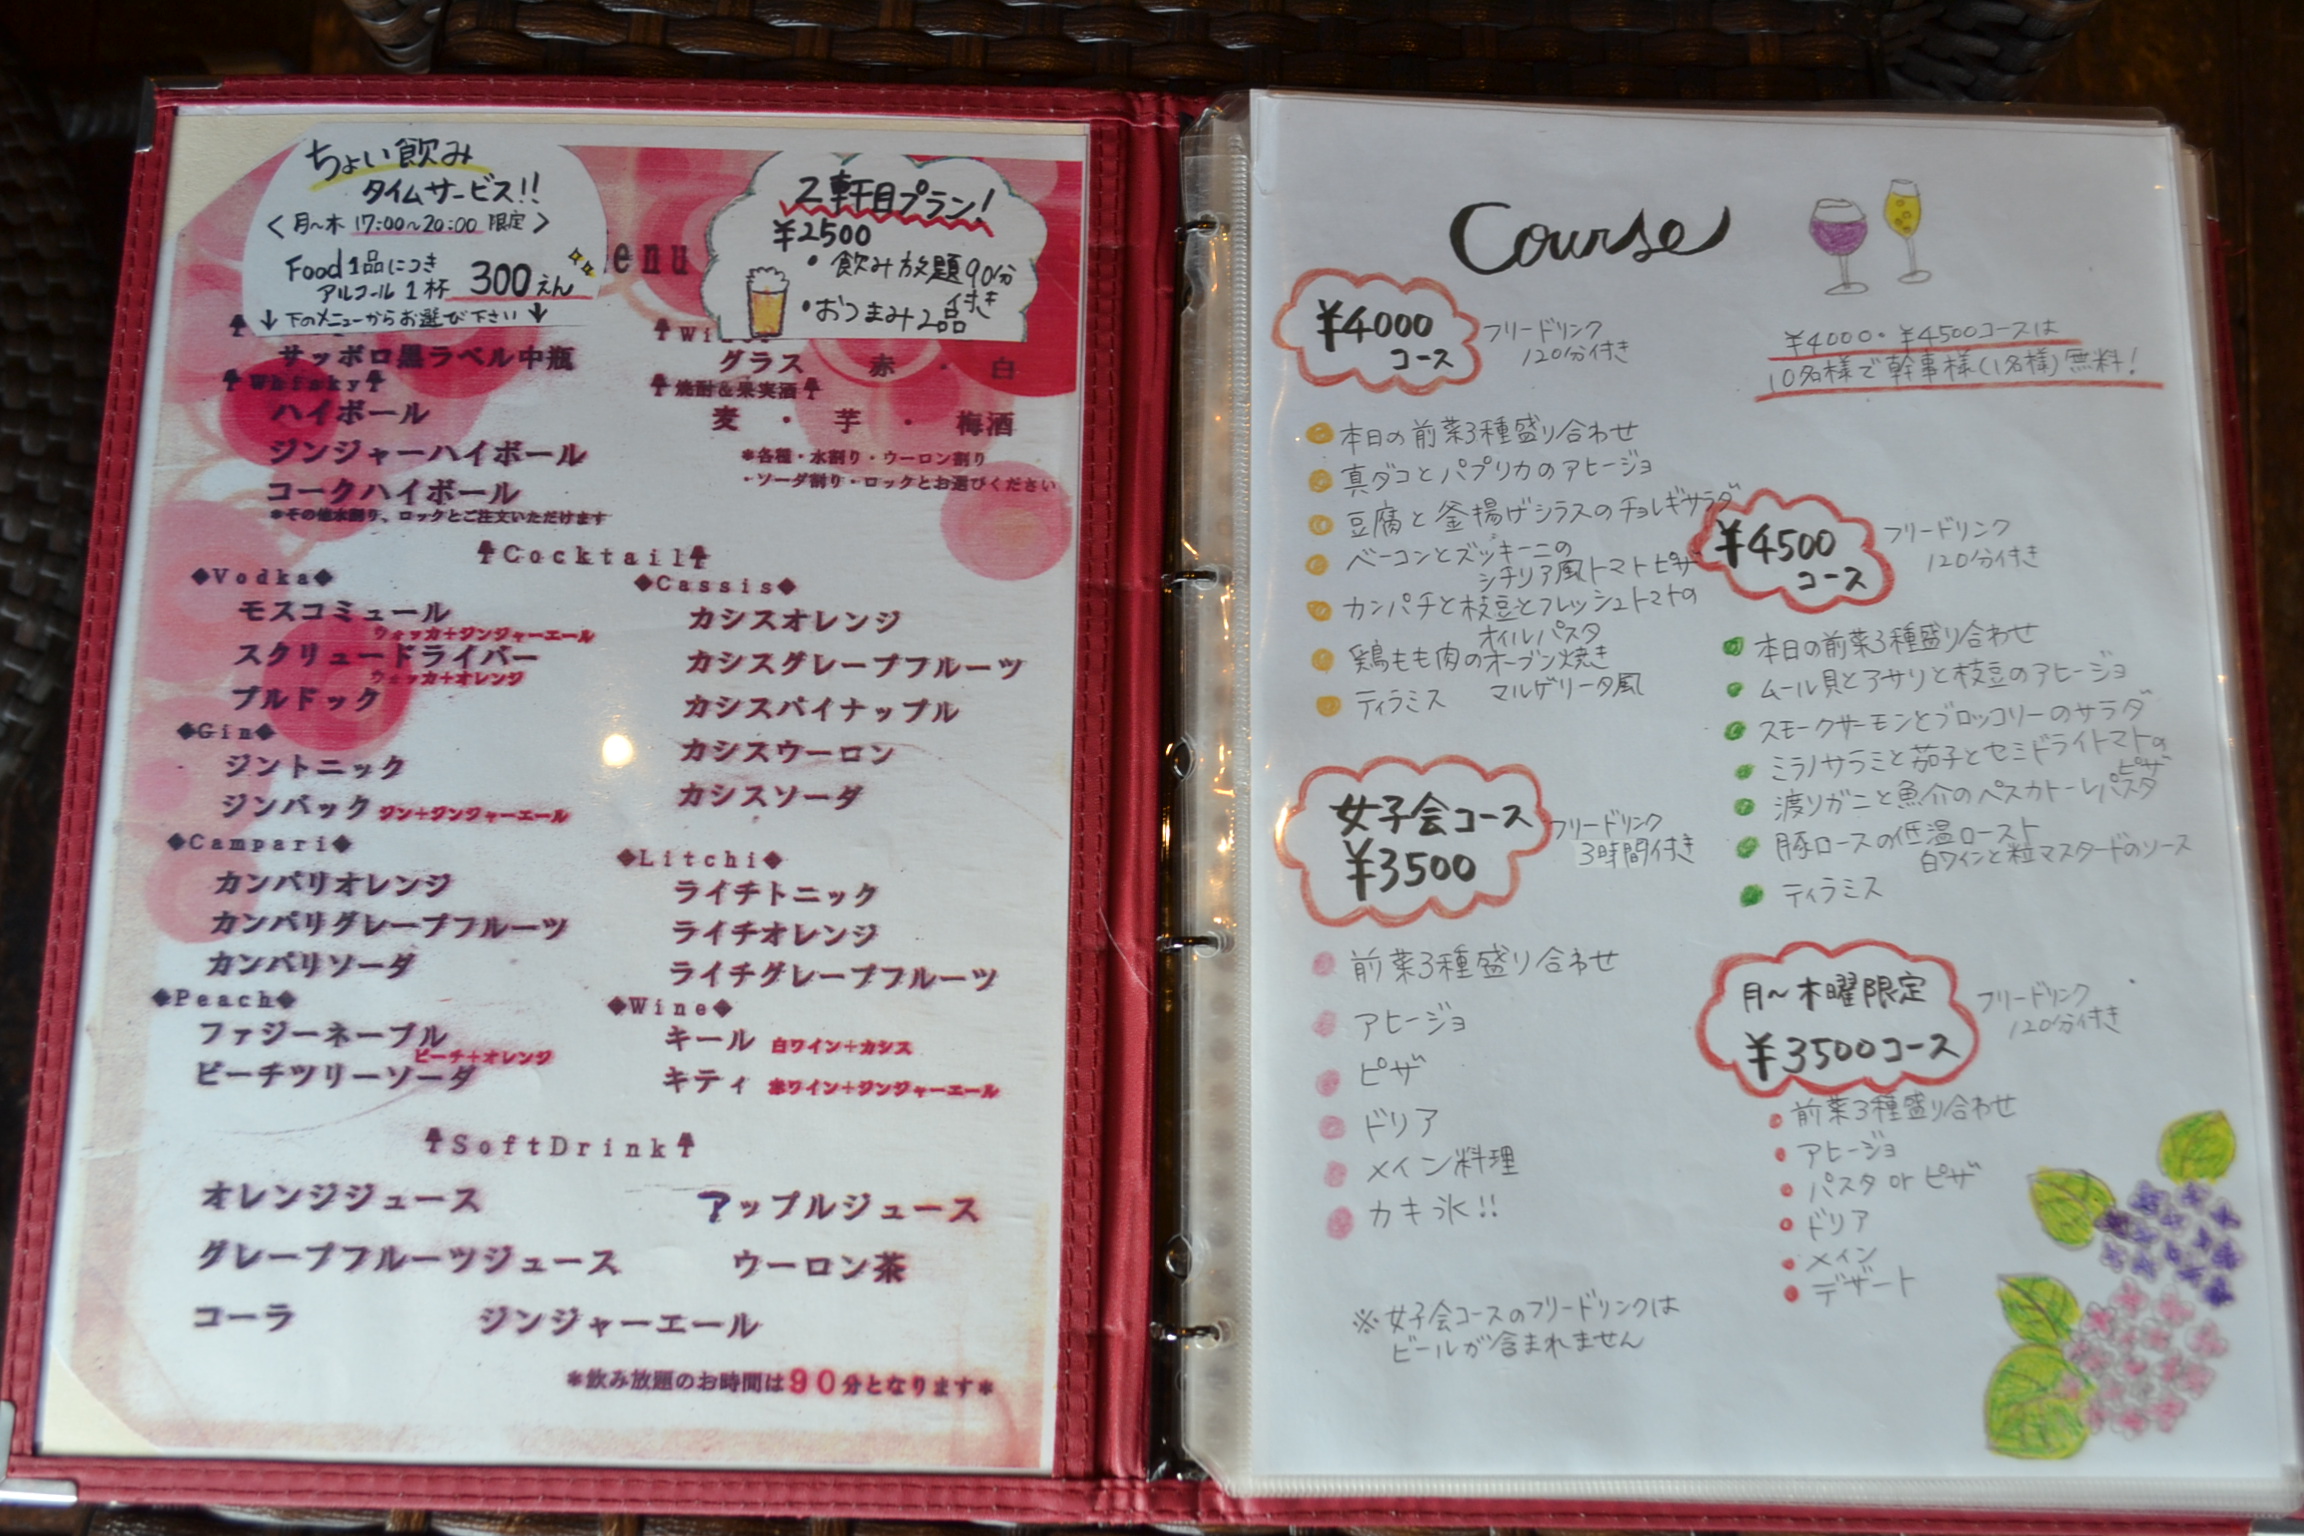 ちょい飲み
タイムサービス!!
<月～木 17:00～20:00 限定>
Food1品につき
アルコール1杯 300えん
↓下のメニューからお選び下さい↓
2軒目プラン!
¥2500
・飲み放題90分
付き
・おつまみ2品
enu
サッポロ黒ラベル中瓶
Whisky
ハイボール
ジンジャーハイボール
コークハイボール
*その他水割り、ロックとご注文いただけます
Wi
グラス 赤・白
焼酎&果実酒
麦・芋・梅酒
*各種・水割り・ウーロン割り
・ソーダ割り・ロックとお選びください
Cocktail
◆Vodka◆
モスコミュール
ウォッカ+ジンジャーエール
スクリュードライバー
ウォッカ+オレンジ
ブルドック
◆Gin◆
ジントニック
ジンバック ジン+ジンジャーエール
◆Campari◆
カンパリオレンジ
カンパリグレープフルーツ
カンパリソーダ
◆Peach◆
ファジーネーブル
ピーチ+オレンジ
ピーチツリーソーダ
◆Cassis◆
カシスオレンジ
カシスグレープフルーツ
カシスパイナップル
カシスウーロン
カシスソーダ
◆Litchi◆
ライチトニック
ライチオレンジ
ライチグレープフルーツ
◆Wine◆
キール 白ワイン+カシス
キティ 赤ワイン+ジンジャーエール
SoftDrink
オレンジジュース アップルジュース
グレープフルーツジュース ウーロン茶
コーラ ジンジャーエール
*飲み放題のお時間は90分となります*
Course
¥4000
コース
フリードリンク
120分付き
¥4000・¥4500コースは
10名様で幹事様(1名様)無料!
本日の前菜3種盛り合わせ
真ダコとパプリカのアヒージョ
豆腐と釜揚げシラスのチョレギサラダ
ベーコンとズッキーニの
シチリア風トマトピザ
カンパチと枝豆とフレッシュトマトの
オイルパスタ
鶏もも肉のオーブン焼き
マルゲリータ風
ティラミス
¥4500
コース
フリードリンク
120分付き
本日の前菜3種盛り合わせ
ムール貝とアサリと枝豆のアヒージョ
スモークサーモンとブロッコリーのサラダ
ミラノサラミと茄子とセミドライトマトの
ピザ
渡りガニと魚介のペスカトーレパスタ
豚ロースの低温ロースト
白ワインと粒マスタードのソース
ティラミス
女子会コース
¥3500
フリードリンク
3時間付き
前菜3種盛り合わせ
アヒージョ
ピザ
ドリア
メイン料理
カキ氷!!
※女子会コースのフリードリンクは
ビールが含まれません
月～木曜限定
¥3500コース
フリードリンク
120分付き
前菜3種盛り合わせ
アヒージョ
パスタ or ピザ
ドリア
メイン
デザート